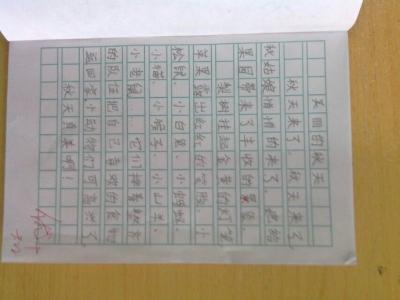 美丽的秋天
秋天来了,秋天来了,
秋姑娘悄悄的来了。她给
果园带来了丰收的果实。
梨树挂起金黄的灯笼
苹果露出红红的笑脸。小
松鼠、小白兔、小蚂蚁、
小猫、小猴子、小山羊、
小老鼠……它们排着整齐
的队伍把自己喜欢的食物
运回家小动物们可高兴了
秋天真美啊!